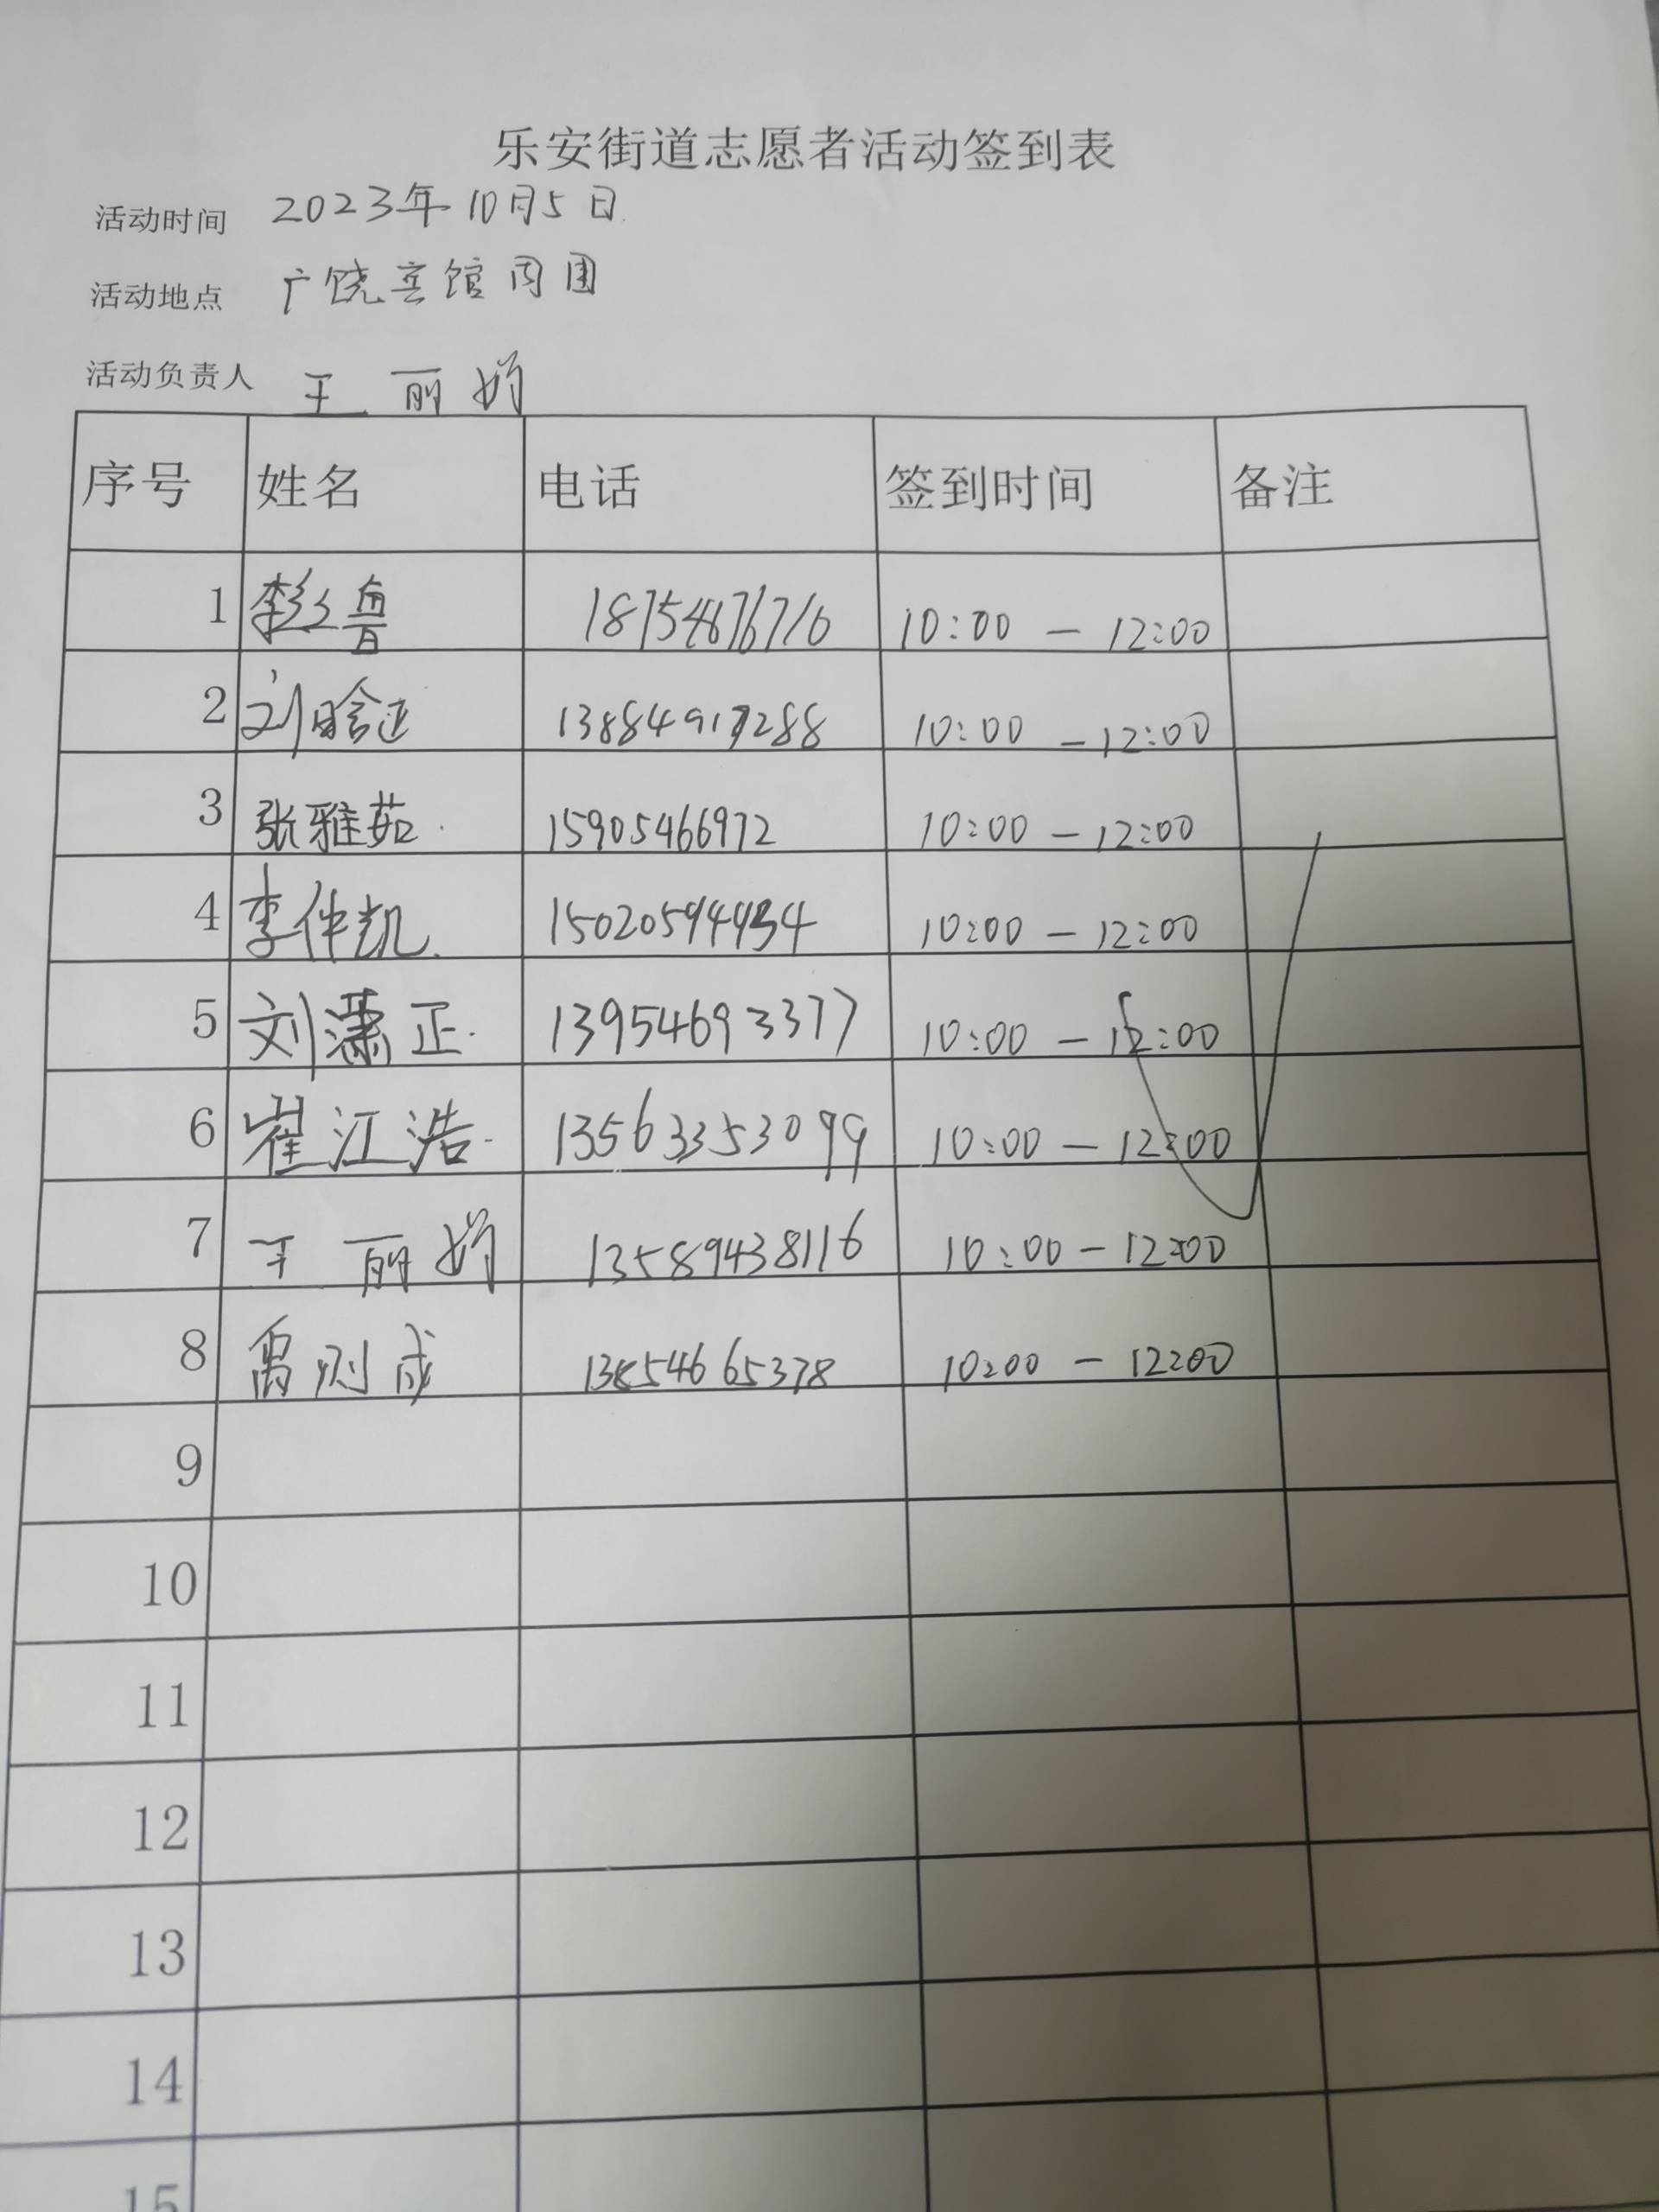 乐安街道志愿者活动签到表
活动时间 2023年10月5日
活动地点 广饶宾馆周围
活动负责人 王丽娟
序号 姓名 电话 签到时间 备注
1 鲁 18754676716 10:00 — 12:00
2 刘晗正 13884917288 10:00 — 12:00
3 张雅茹 15905466972 10:00 — 12:00
4 李仲凯 15020594434 10:00 — 12:00
5 刘潇正 13954693377 10:00 — 12:00
6 崔江浩 13563353099 10:00 — 12:00
7 王丽娟 13589438116 10:00 — 12:00
8 禹则成 13854665378 10:00 — 12:00
9
10
11
12
13
14
15